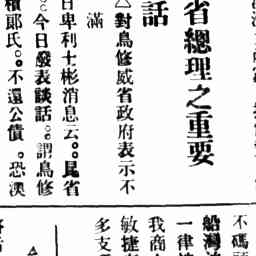 省總理之重要
話
△對鳥修威省政府表示不
滿
日卑利士彬消息云。。昆省
。。今日發表談話。。謂鳥修
積郎氏。。不還公債。恐澳
不碼頭
船灣
一律
我商
敏捷
多支